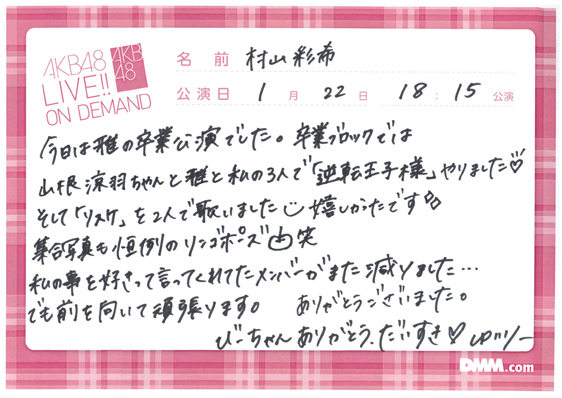 AKB48
LIVE!!
ON DEMAND
AKB
48
名前 村山彩希
公演日 1月22日 18:15公演
今日は雅の卒業公演でした。卒業ブロックでは
山根涼羽ちゃんと雅と私の3人で「逆転王子様」やりました♡
そして「リスケ」を2人で歌いました 嬉しかったです
集合写真も恒例のリンゴポーズ 笑
私の事を好きって言ってくれてたメンバーがまた減りました…
でも前を向いて頑張ります。 ありがとうございました。
びーちゃんありがとう、だいすき♡ ゆいりー
DMM.com